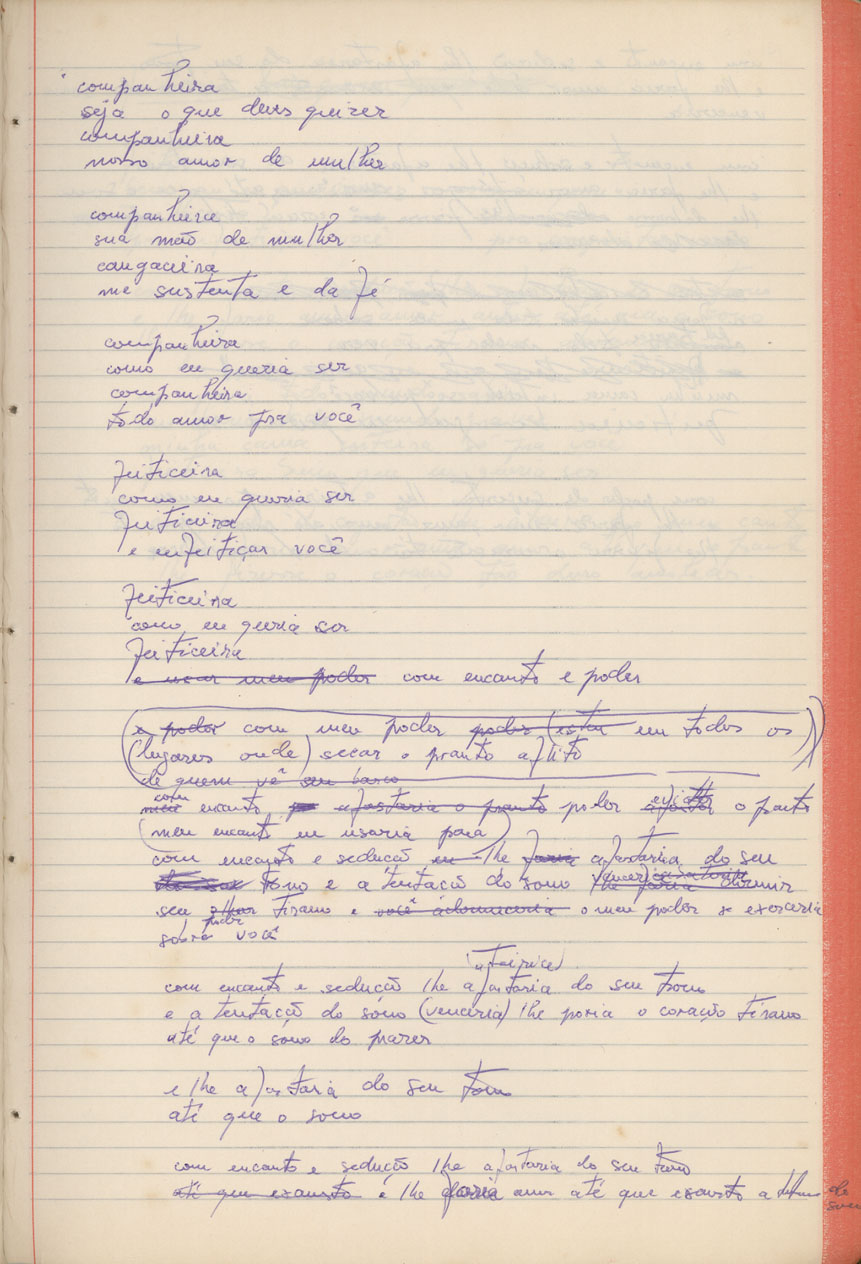 companheira
seja o que deus quizer
companheira
nosso amor de mulher
companheira
sua mão de mulher
cangaceira
me sustenta e da fé
companheira
como eu queria ser
companheira
todo amor pra você
feiticeira
como eu queria ser
feiticeira
e enfeitiçar você
feiticeira
como eu queria ser
feiticeira
e usar meu poder com encanto e poder
e poder com meu poder poder (estar em todos os
(lugares onde) secar o pranto aflito
de quem vê seu barco
com
meu encanto afastaria o pranto poder o pranto
(meu encanto eu usaria para)
com encanto e seducão eu lhe faria afastaria do seu
trono e a tentacão do sono lhe faria dormir
seu olhar tirano e você adormeceria o meu poder se exerceria
poder
sobre você
com encanto e seducão lhe afastaria do seu trono
e a tentacão do sono (venceria) lhe poria o coração tirano
até que o sono do prazer
e lhe afastaria do seu trono
até que o sono
com encanto e seducão lhe afastaria do seu trono
até que exausto e lhe faria amor até que exausto a
de
sono